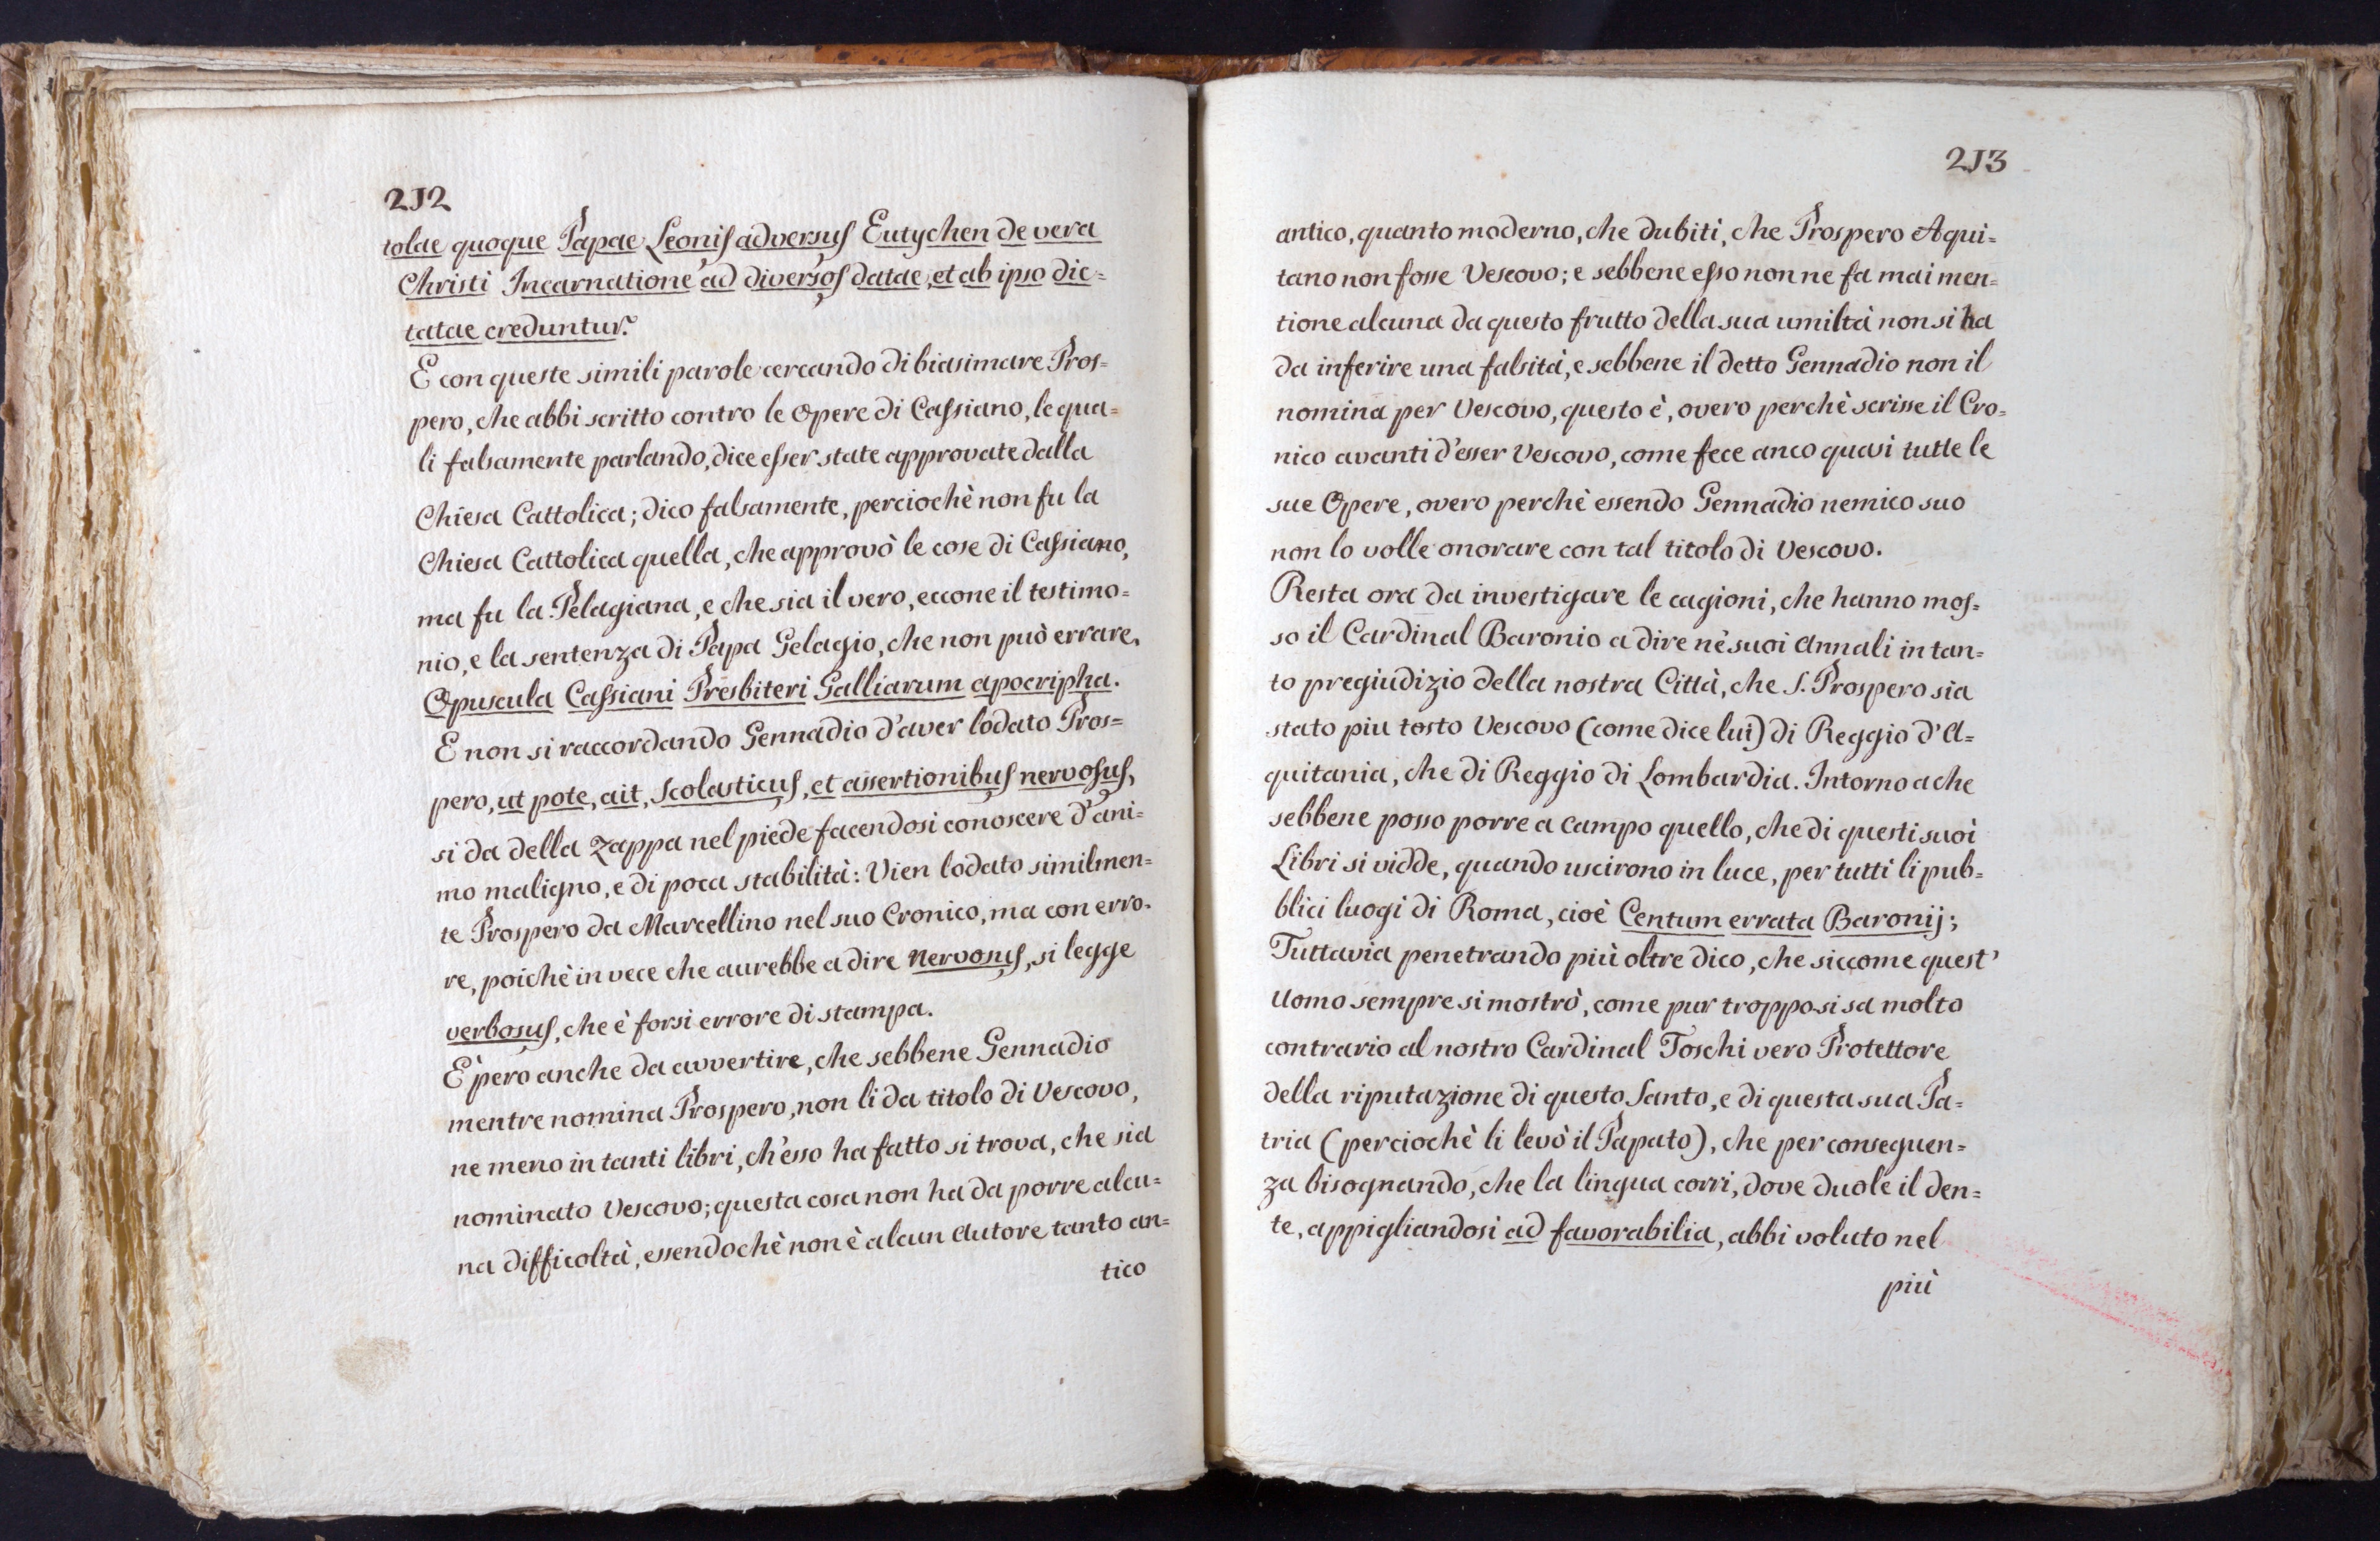 212
tolae quoque Papae Leonis adversus Eutychen de vera
Christi Incarnatione ad diversos datae, et ab ipso dic=
tatae creduntur.
E con queste simili parole cercando di biasimare Pros=
pero, che abbi scritto contro le Opere di Cassiano, le qua=
li falsamente parlando, dice esser state approvate dalla
Chiesa Cattolica; dico falsamente, perciochè non fu la
Chiesa Cattolica quella, che approvò le cose di Cassiano,
ma fu la Pelagiana, e che sia il vero, eccone il testimo=
nio, e la sentenza di Papa Gelagio, che non può errare,
Opuscula Cassiani Presbiteri Galliarum apocripha.
E non si raccordando Gennadio d'aver lodato Pros=
pero, ut pote, ait, Scolasticus, et assertionibus nervosus,
si da della Zappa nel piede facendosi conoscere d'ani=
mo maligno, e di poca stabilità: Vien lodato similmen=
te Prospero da Marcellino nel suo Cronico, ma con erro=
re, poichè in vece che aurebbe a dire nervosus, si legge
verbosus, che è forsi errore di stampa.
È pero anche da avvertire, che sebbene Gennadio
mentre nomina Prospero, non li da titolo di Vescovo,
ne meno in tanti libri, ch'esso ha fatto si trova, che sia
nominato Vescovo; questa cosa non ha da porre alcu=
na difficoltà, essendochè non è alcun Autore tanto an=
tico
213
antico, quanto moderno, che dubiti, che Prospero Aqui=
tano non fosse Vescovo; e sebbene esso non ne fa mai men=
tione alcuna da questo frutto della sua umiltà non si ha
da inferire una falsità, e sebbene il detto Gennadio non il
nomina per Vescovo, questo è, overo perchè scrisse il Cro=
nico avanti d'esser Vescovo, come fece anco quasi tutte le
sue Opere, overo perchè essendo Gennadio nemico suo
non lo volle onorare con tal titolo di Vescovo.
Resta ora da investigare le cagioni, che hanno mos=
so il Cardinal Baronio a dire ne' suoi Annali in tan=
to pregiudizio della nostra Città, che S. Prospero sia
stato piu tosto Vescovo (come dice lui) di Reggio d'A=
quitania, che di Reggio di Lombardia. Intorno a che
sebbene posso porre a campo quello, che di questi suoi
Libri si vidde, quando uscirono in luce, per tutti li pub=
blici luogi di Roma, cioè Centum errata Baronij;
Tuttavia penetrando più oltre dico, che siccome quest'
Uomo sempre si mostrò, come pur troppo si sa molto
contrario al nostro Cardinal Toschi vero Protettore
della riputazione di questo Santo, e di questa sua Pa=
tria (perciochè li levò il Papato), che per conseguen=
za bisognando, che la lingua corri, dove duole il den=
te, appigliandosi ad favorabilia, abbi voluto nel
più